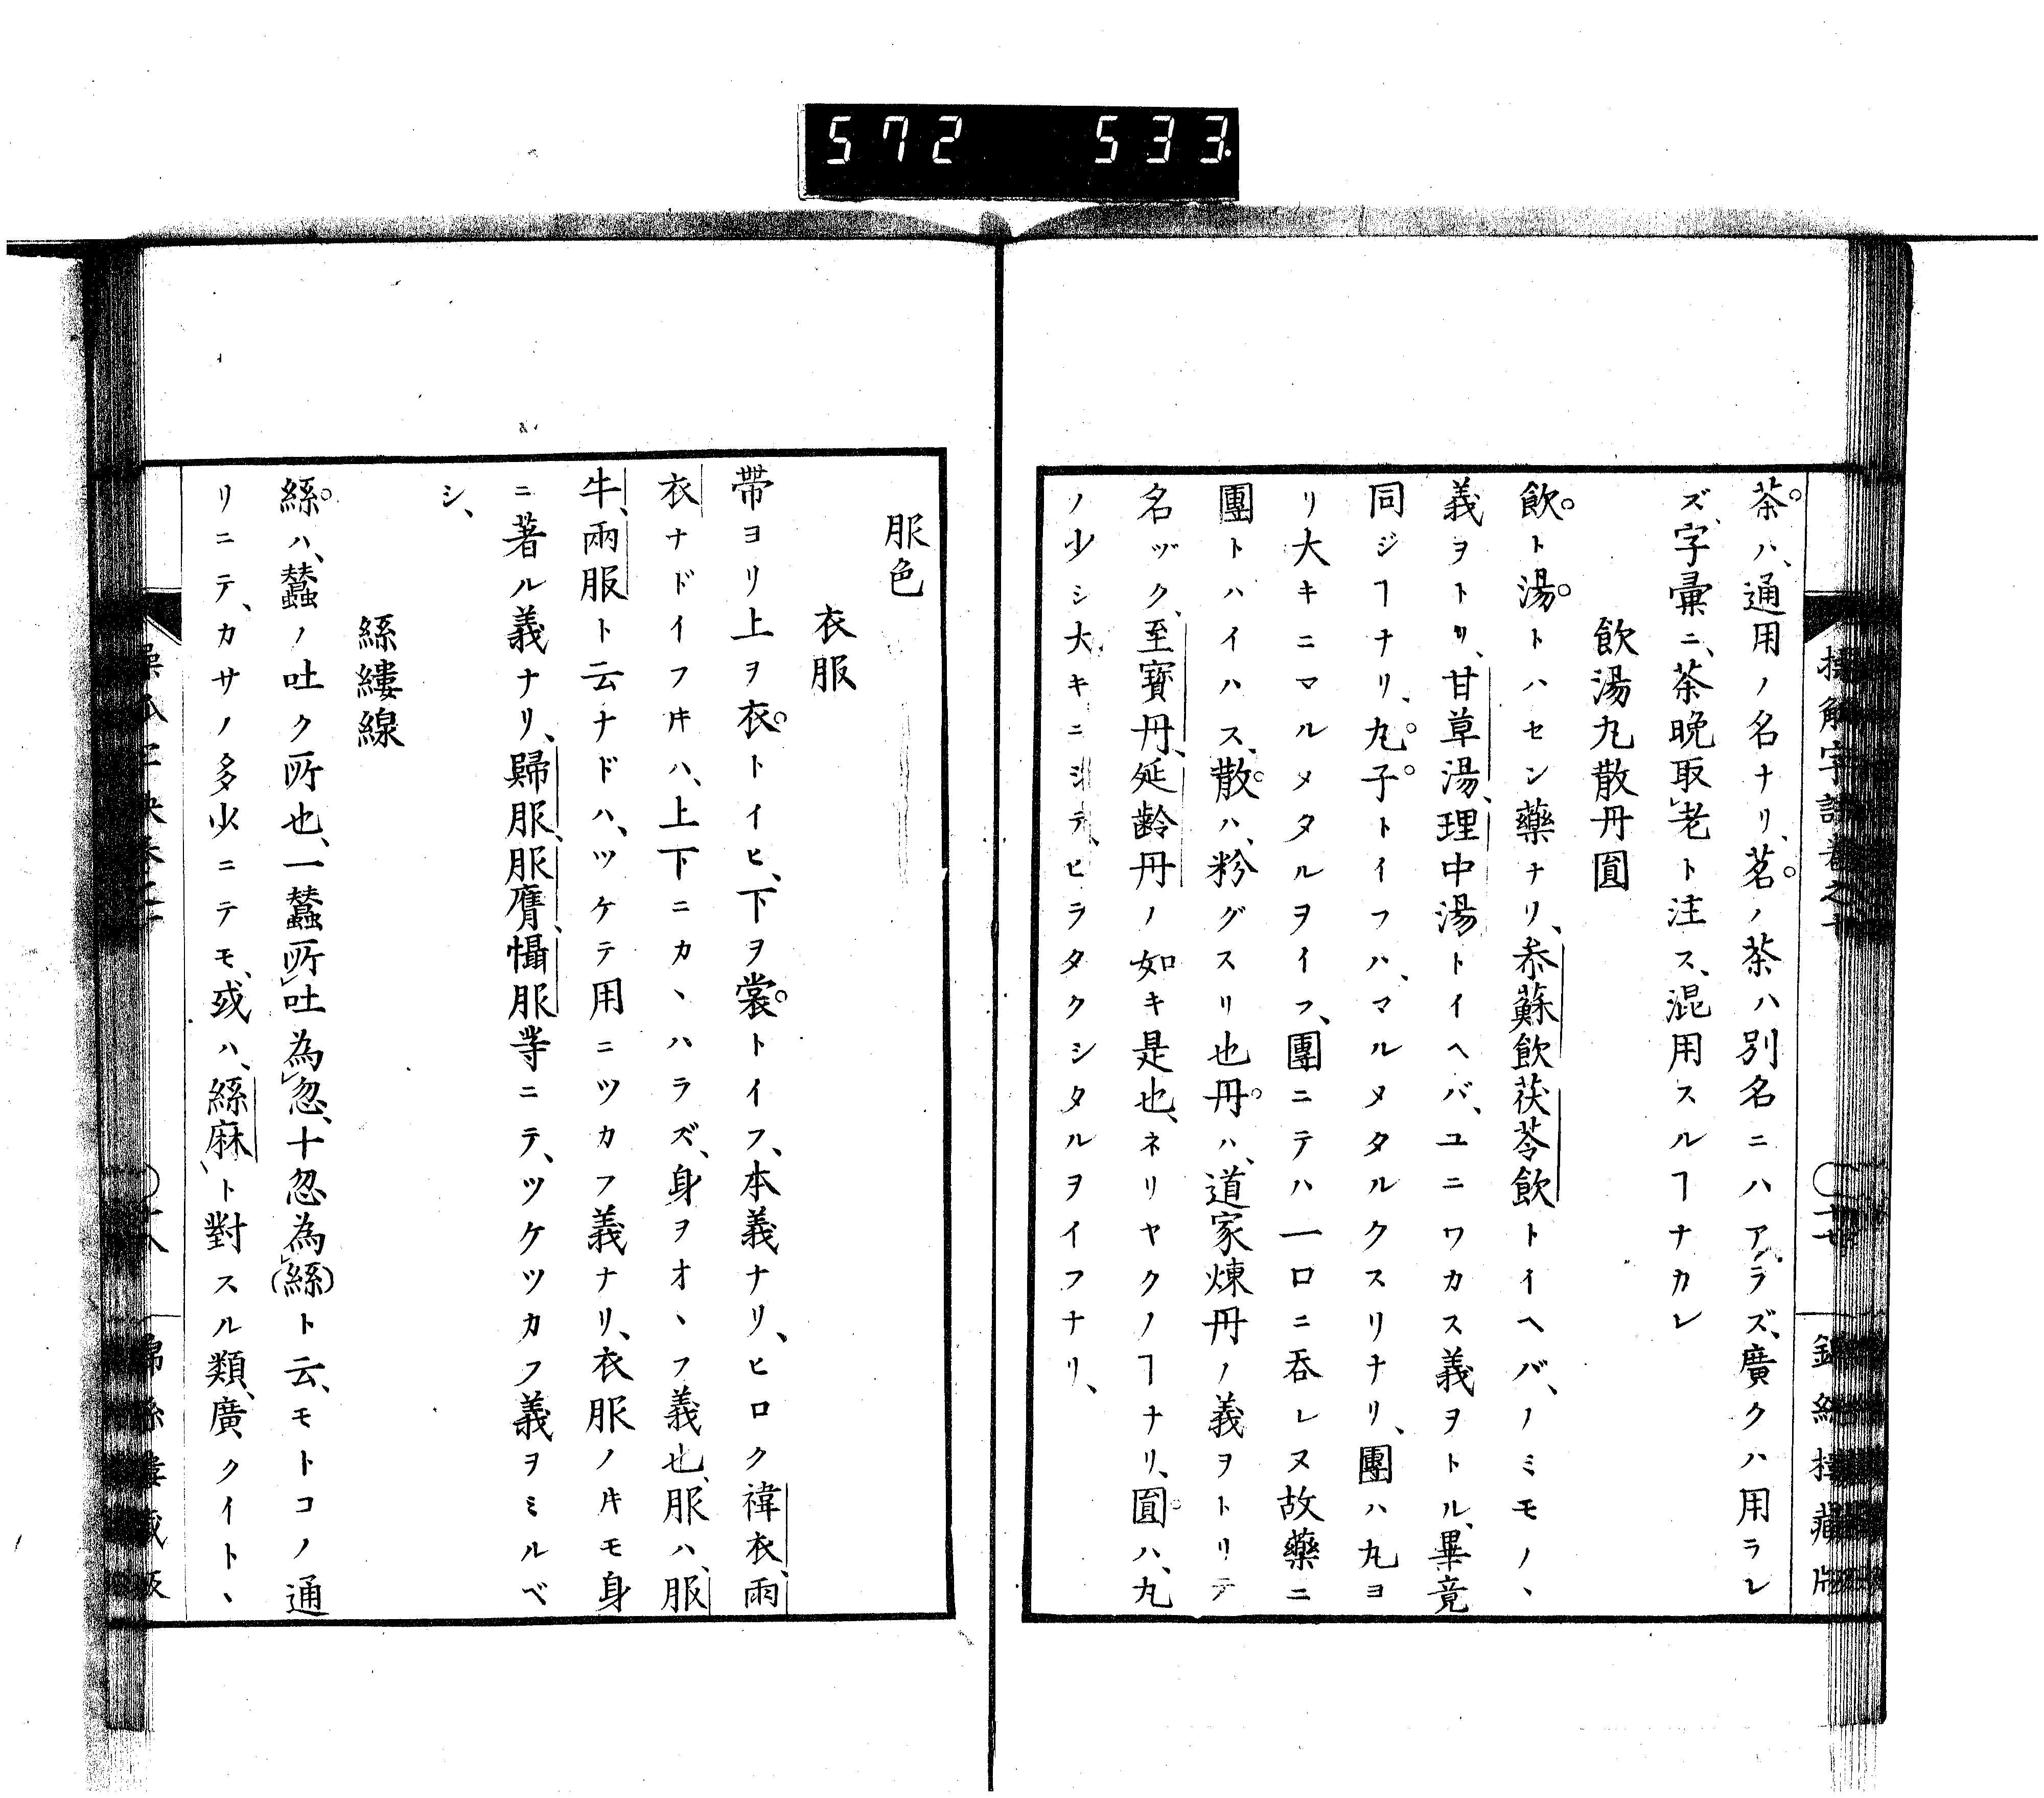 572 533
茶ハ、通用ノ名ナリ、茗ノ茶ハ別名ニハアラズ、廣クハ用ラレ
ズ、字彙ニ、茶晩取老ト注ス、混用スルヿナカレ
飲湯丸散丹圓
飲ト湯トハセン藥ナリ、参蘇飲茯苓飲トイヘバ、ノミモノヽ
義ヲトリ、甘草湯、理中湯トイヘバ、ユニワカス義ヲトル、畢竟
同ジヿナリ、丸子トイフハ、マルメタルクスリナリ、團ハ丸ヨ
リ大キニマルメタルヲイフ、團ニテハ一口ニ呑レヌ故藥ニ
團トハイハス、散ハ、粉グスリ也丹ハ、道家煉丹ノ義ヲトリテ
名ヅク、至寶丹、延齡丹ノ如キ是也、ネリヤクノヿナリ、圓ハ、丸
ノ少シ大キニシテ、ヒラタクシタルヲイフナリ、
服色
衣服
帶ヨリ上ヲ衣トイヒ、下ヲ裳トイフ、本義ナリ、ヒロク褘衣、雨
衣ナドイフ𪜈ハ、上下ニカヽハラズ、身ヲオヽフ義也、服ハ、服
牛、兩服ト云ナドハ、ツケテ用ニツカフ義ナリ、衣服ノ𪜈モ身
ニ著ル義ナリ、歸服、服膺、懾服等ニテ、ツケツカフ義ヲミルベ
シ、
絲縷線
絲ハ、蠶ノ吐ク所也、一蠶所吐為忽、十忽為(絲)ト云、モトコノ通
リニテ、カサノ多少ニテモ、或ハ、絲麻、ト對スル類、廣クイトヽ